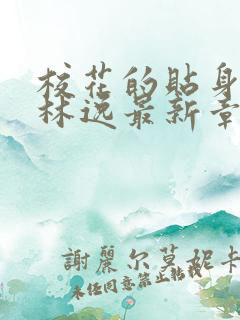 校花的貼身
林逸最新章
謝麗尔莫妮卡
未经同意禁止转载